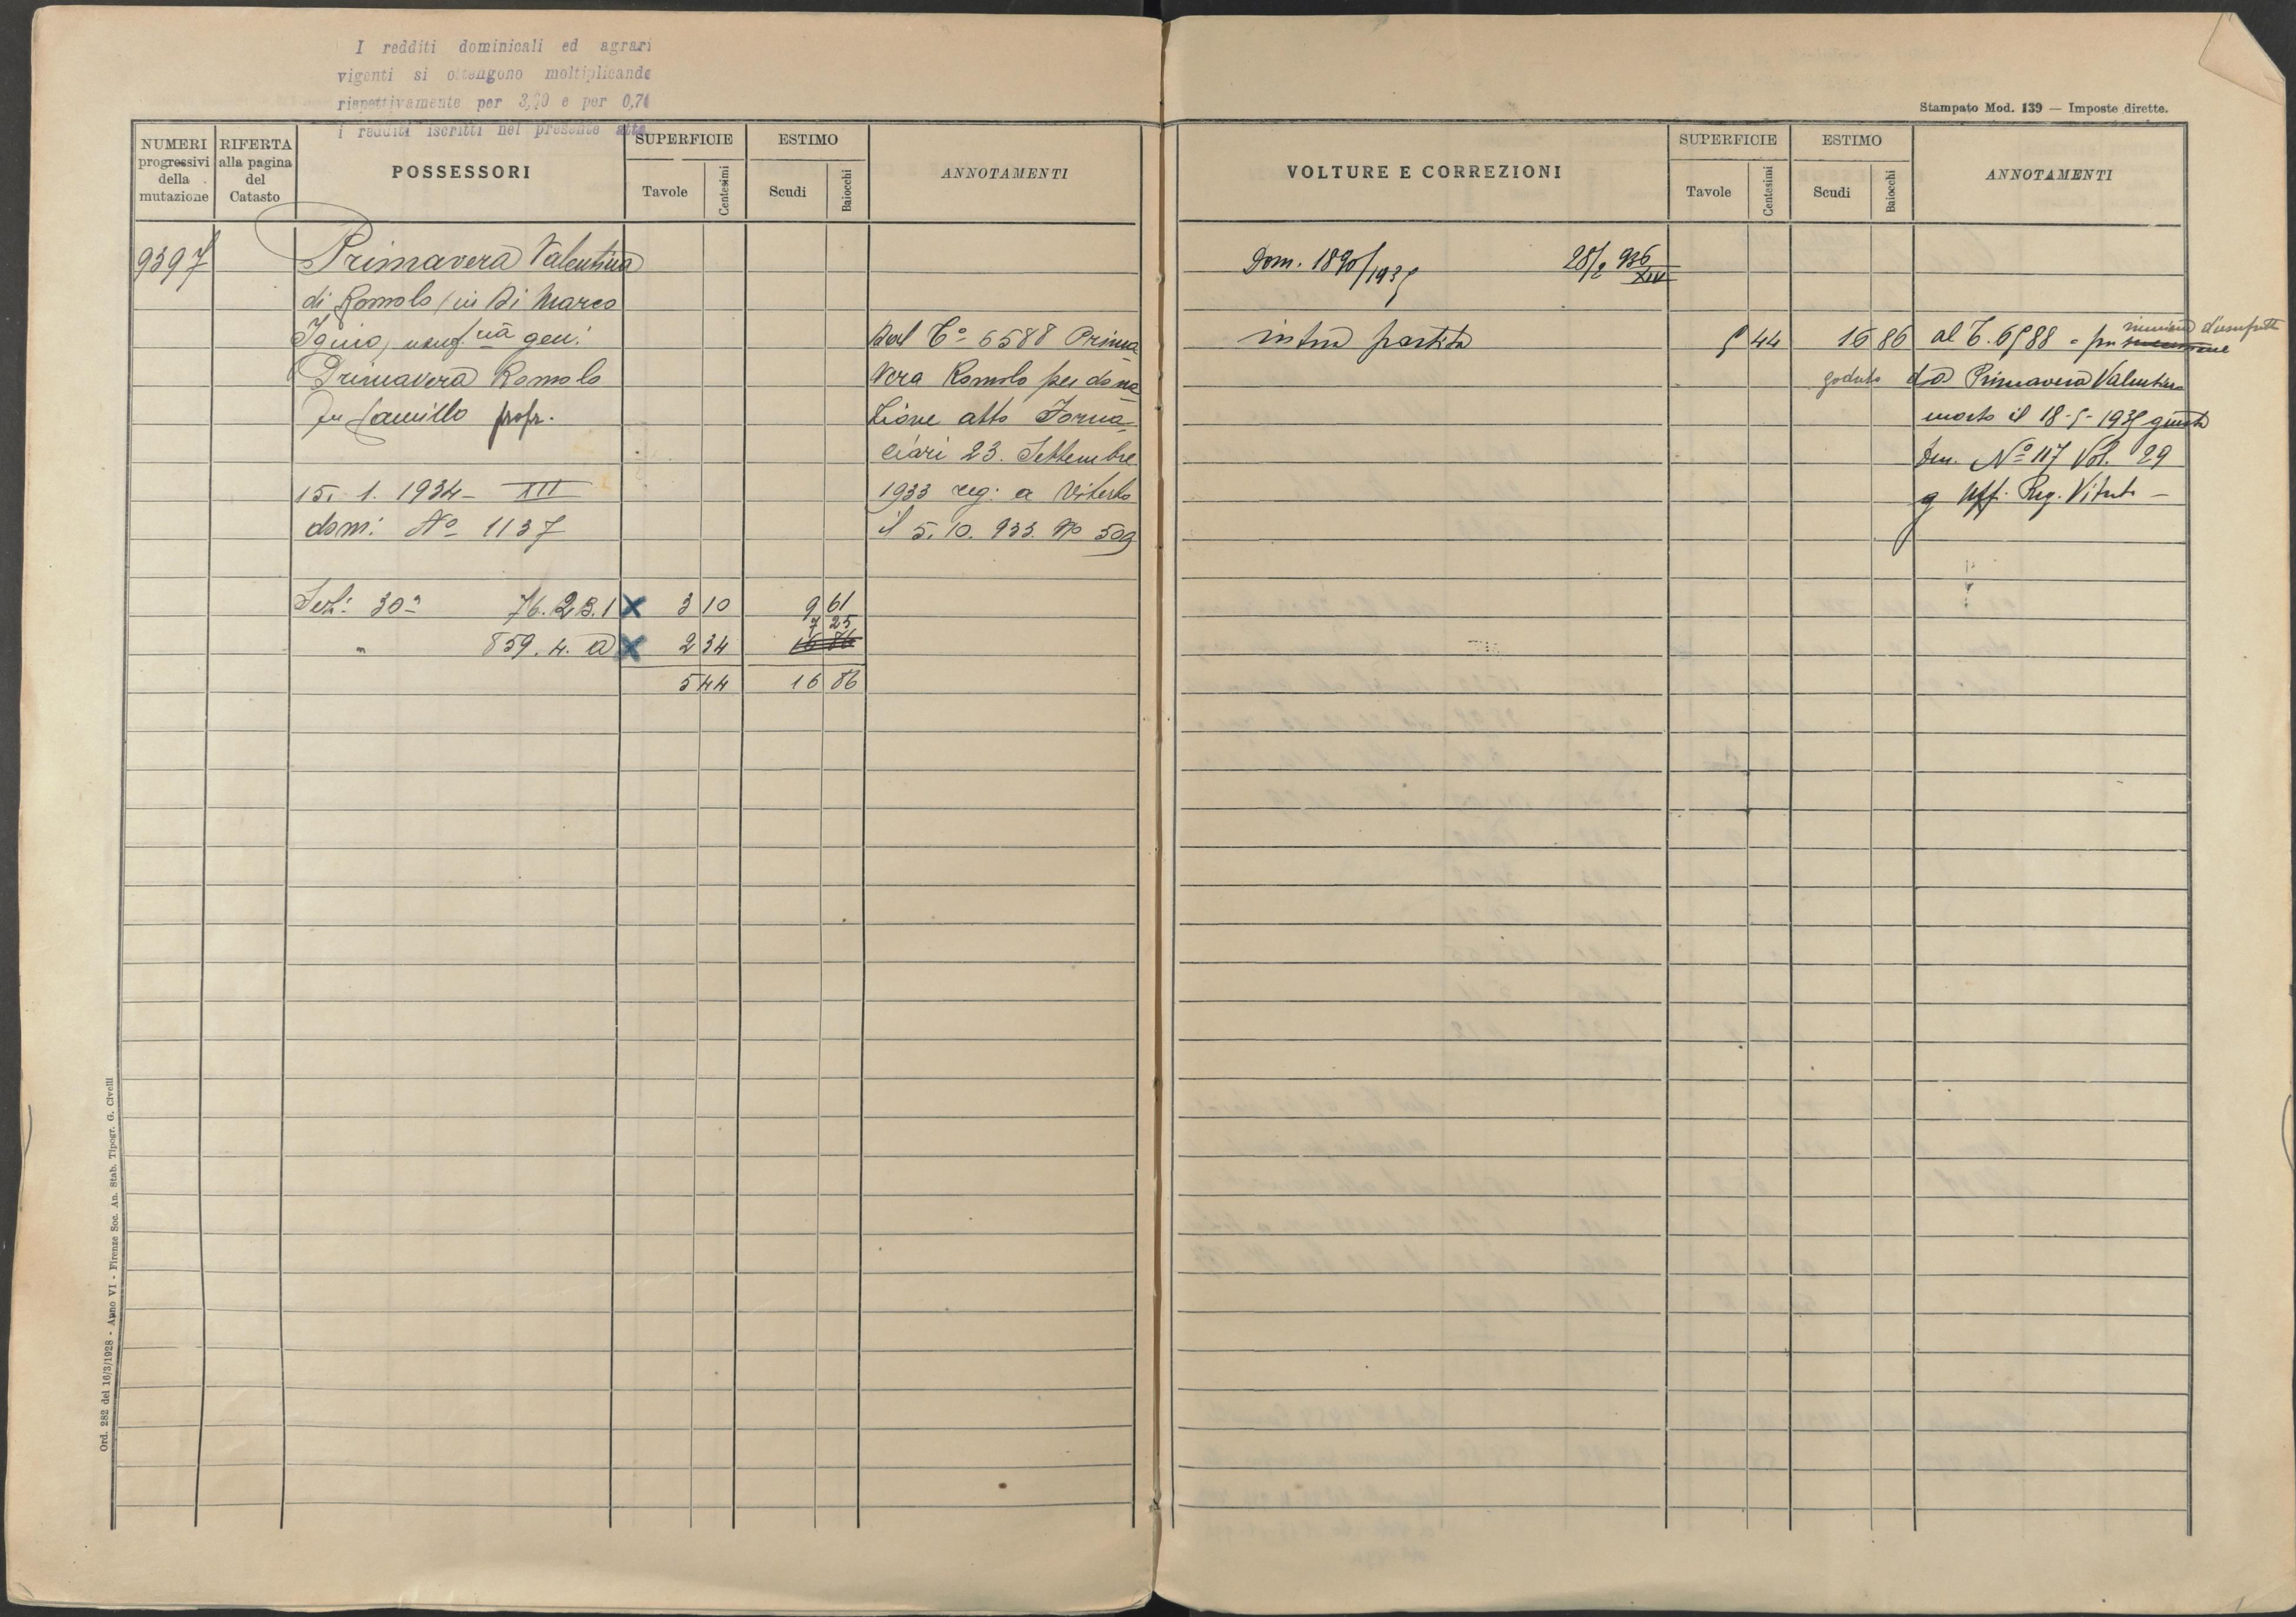 I redditi dominicali ed agrari
vigenti si ottengono moltiplicando
rispettivamente per 3,20 e per 0,70
i redditi iscritti nel presente atto
Stampato Mod. 139 — Imposte dirette.
NUMERI progressivi della mutazione
RIFERTA alla pagina del Catasto
POSSESSORI
SUPERFICIE
Tavole
Centesimi
ESTIMO
Scudi
Baiocchi
ANNOTAMENTI
VOLTURE E CORREZIONI
SUPERFICIE
Tavole
Centesimi
ESTIMO
Scudi
Baiocchi
ANNOTAMENTI
9397 Primavera Valentina
di Romolo in Di Marco
Igino, usuf.ria gen:
Primavera Romolo
fu Camillo propr.
15. 1. 1934 - XII
dom: No 1137
Dal Co 6588 Prima
vera Romolo per dona
zione atto Forna-
ciari 23. Settembre
1933 reg: a Viterbo
il 5. 10. 933. No 509
Sez: 30a 76.2B.1 X 3 10 9 61
7 25
" 859. 4. a X 2 34 16 86
5 44 16 86
Dom. 1890/1935 28/2 936 XIV
intera partita 5 44 16 86 al C. 6588 = per successione
riunione d'usufrutto
goduto da Primavera Valentina
morta il 18-5-1935 giusta
den. No 117 Vol. 29
Uff. Reg. Viterbo -
Ord. 282 del 16/3/1928 - Anno VI - Firenze Soc. An. Stab. Tipogr. G. Civelli